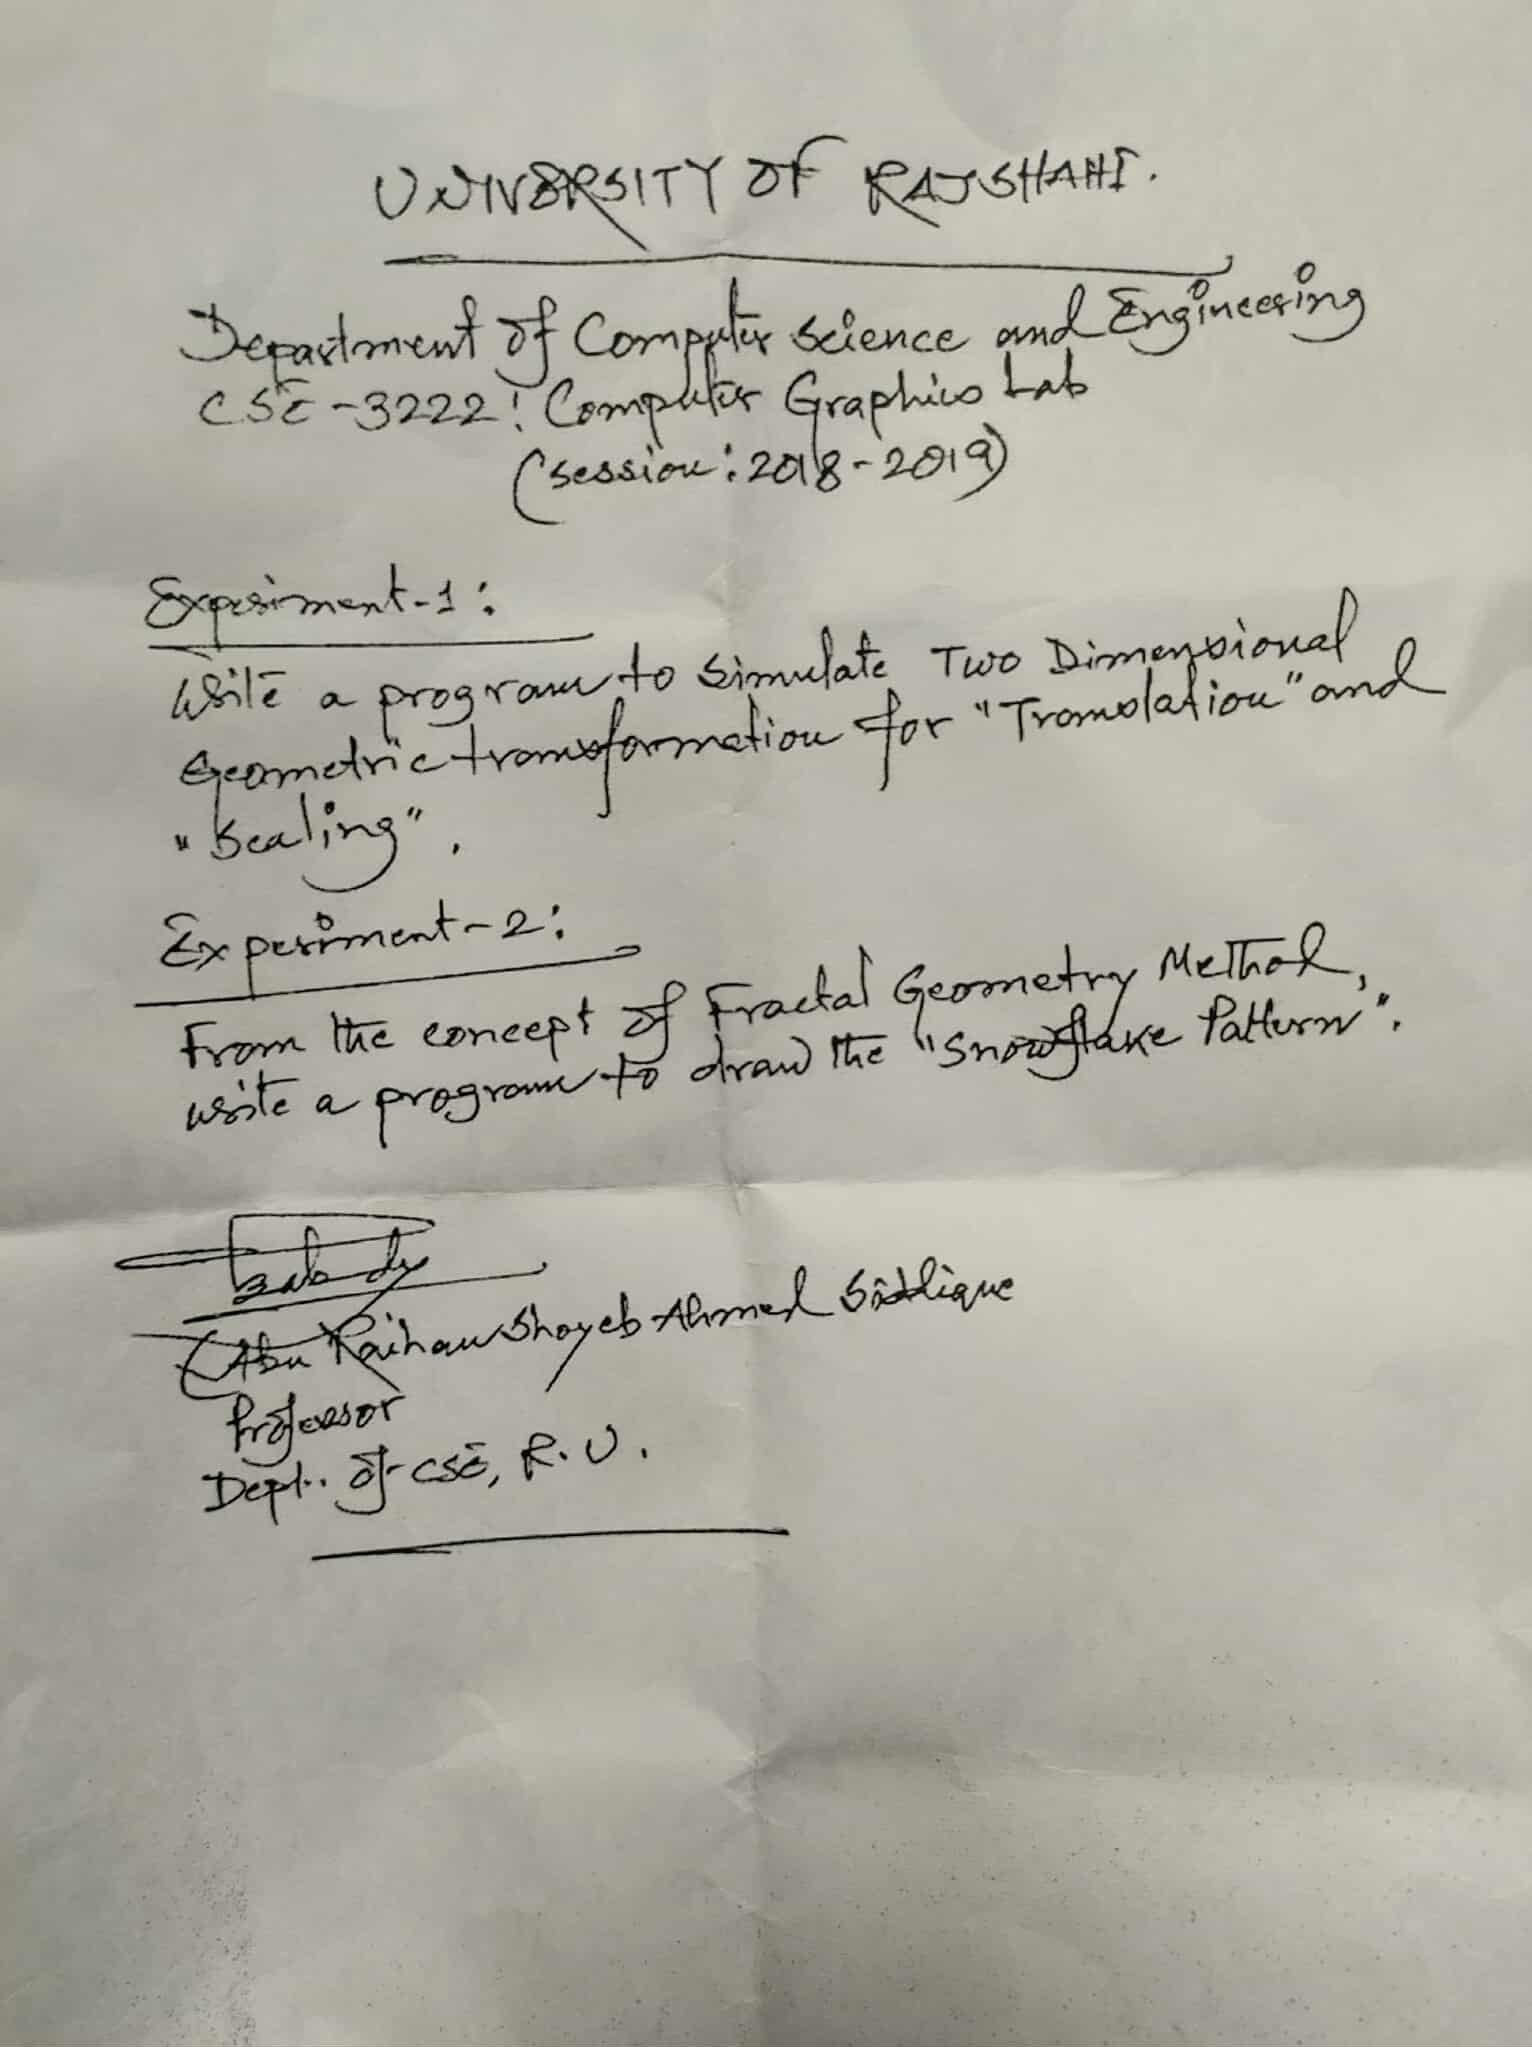 UNIVERSITY OF RAJSHAHI.
Department of Computer Science and Engineering
CSE-3222: Computer Graphics Lab
(Session: 2018-2019)
Experiment-1:
Write a program to Simulate Two Dimensional
Geometric transformation for "Translation" and
"Scaling".
Experiment-2:
From the concept of Fractal Geometry Method,
write a program to draw the "Snowflake Pattern".
(Abu Raihan Shoyeb Ahmed Siddique
Professor
Dept. of CSE, R.U.